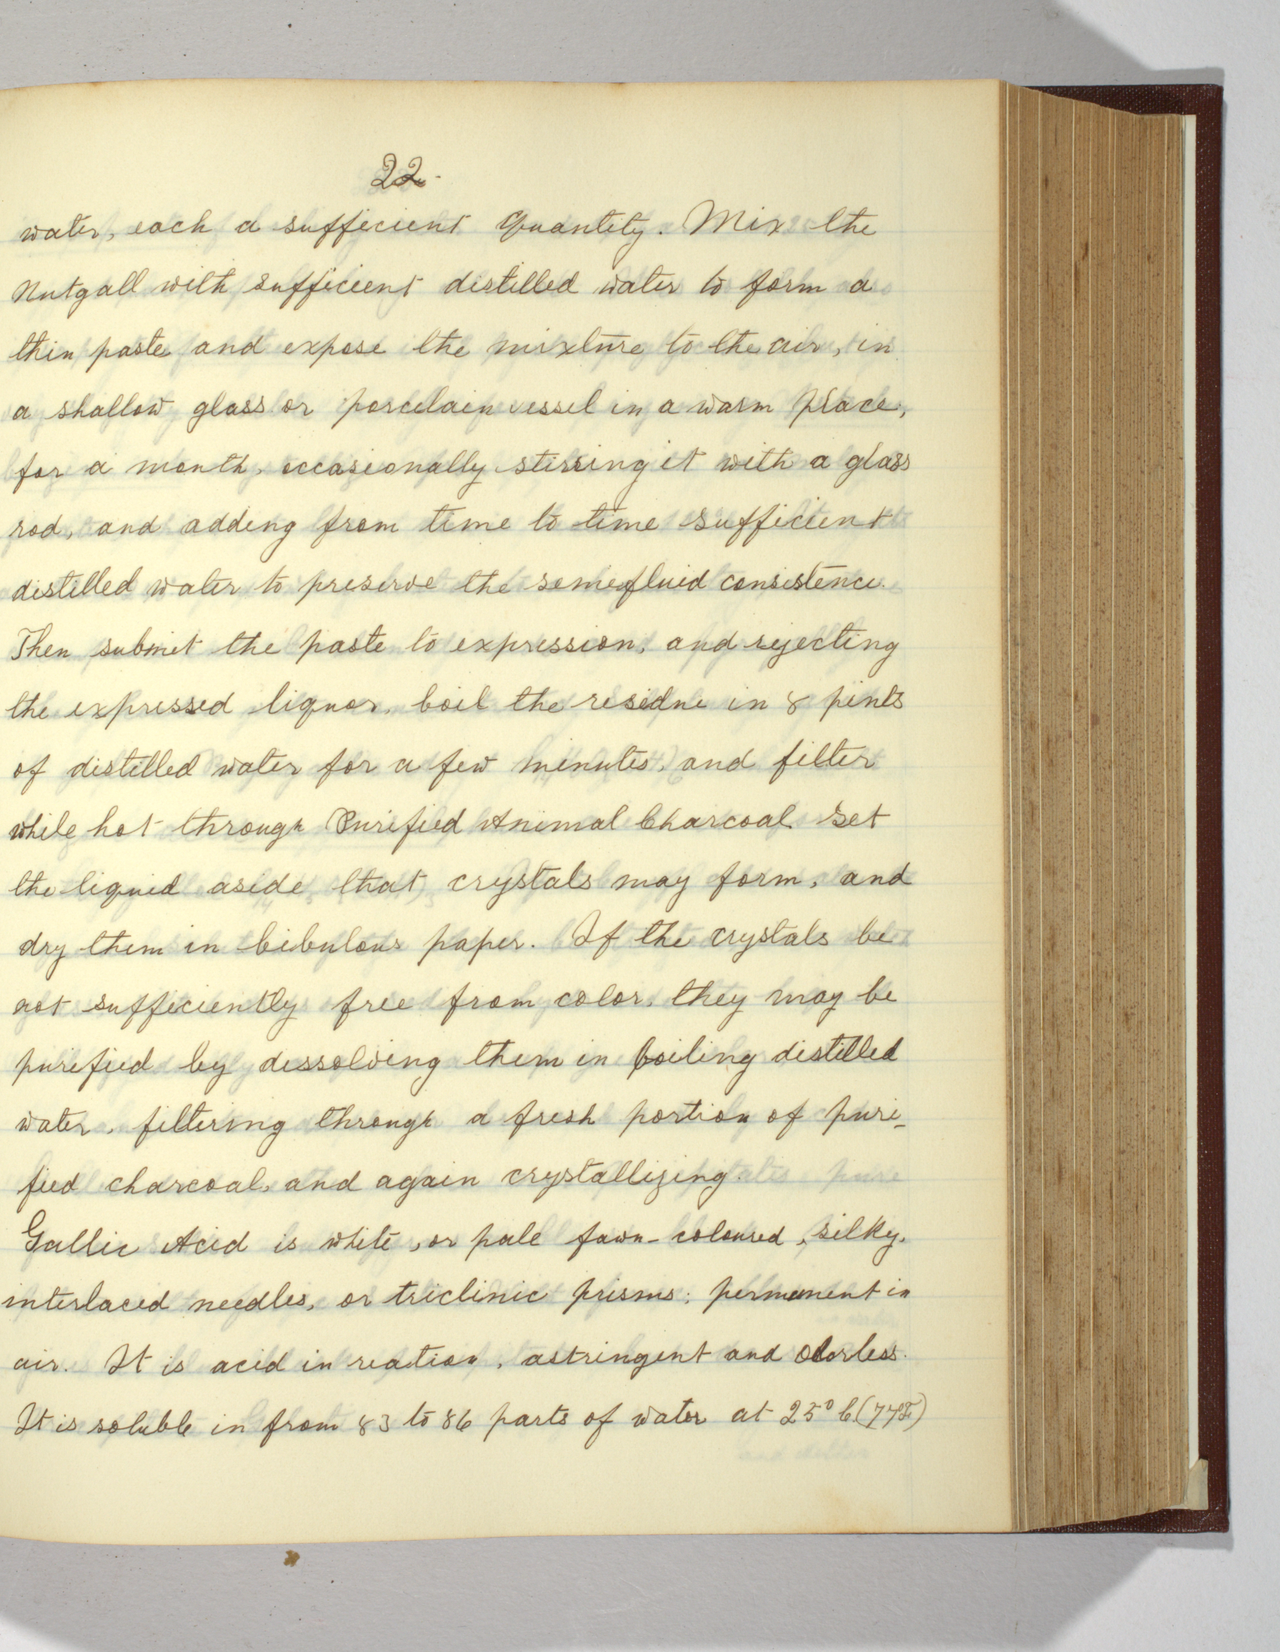 22.
water, each a sufficient quantity. Mix the
Nutgall with sufficient distilled water to form a
thin paste and expose the mixture to the air, in
a shallow glass or porcelain vessel in a warm place,
for a month, occasionally stirring it with a glass
rod, and adding from time to time sufficient
distilled water to preserve the semifluid consistence.
Then submit the paste to expression, and rejecting
the expressed liquor, boil the residue in 8 pints
of distilled water for a few minutes, and filter
while hot through Purified Animal Charcoal. Set
the liquid aside, that crystals may form, and
dry them in bibulous paper. If the crystals be
not sufficiently free from color, they may be
purified by dissolving them in boiling distilled
water, filtering through a fresh portion of puri-
fied charcoal, and again crystallizing.
Gallic Acid is white, or pale fawn-coloured, silky,
interlaced needles, or triclinic prisms; permenent in
air. It is acid in reation, astringent and odorless.
It is soluble in from 83 to 86 parts of water at 25° C. (77F)